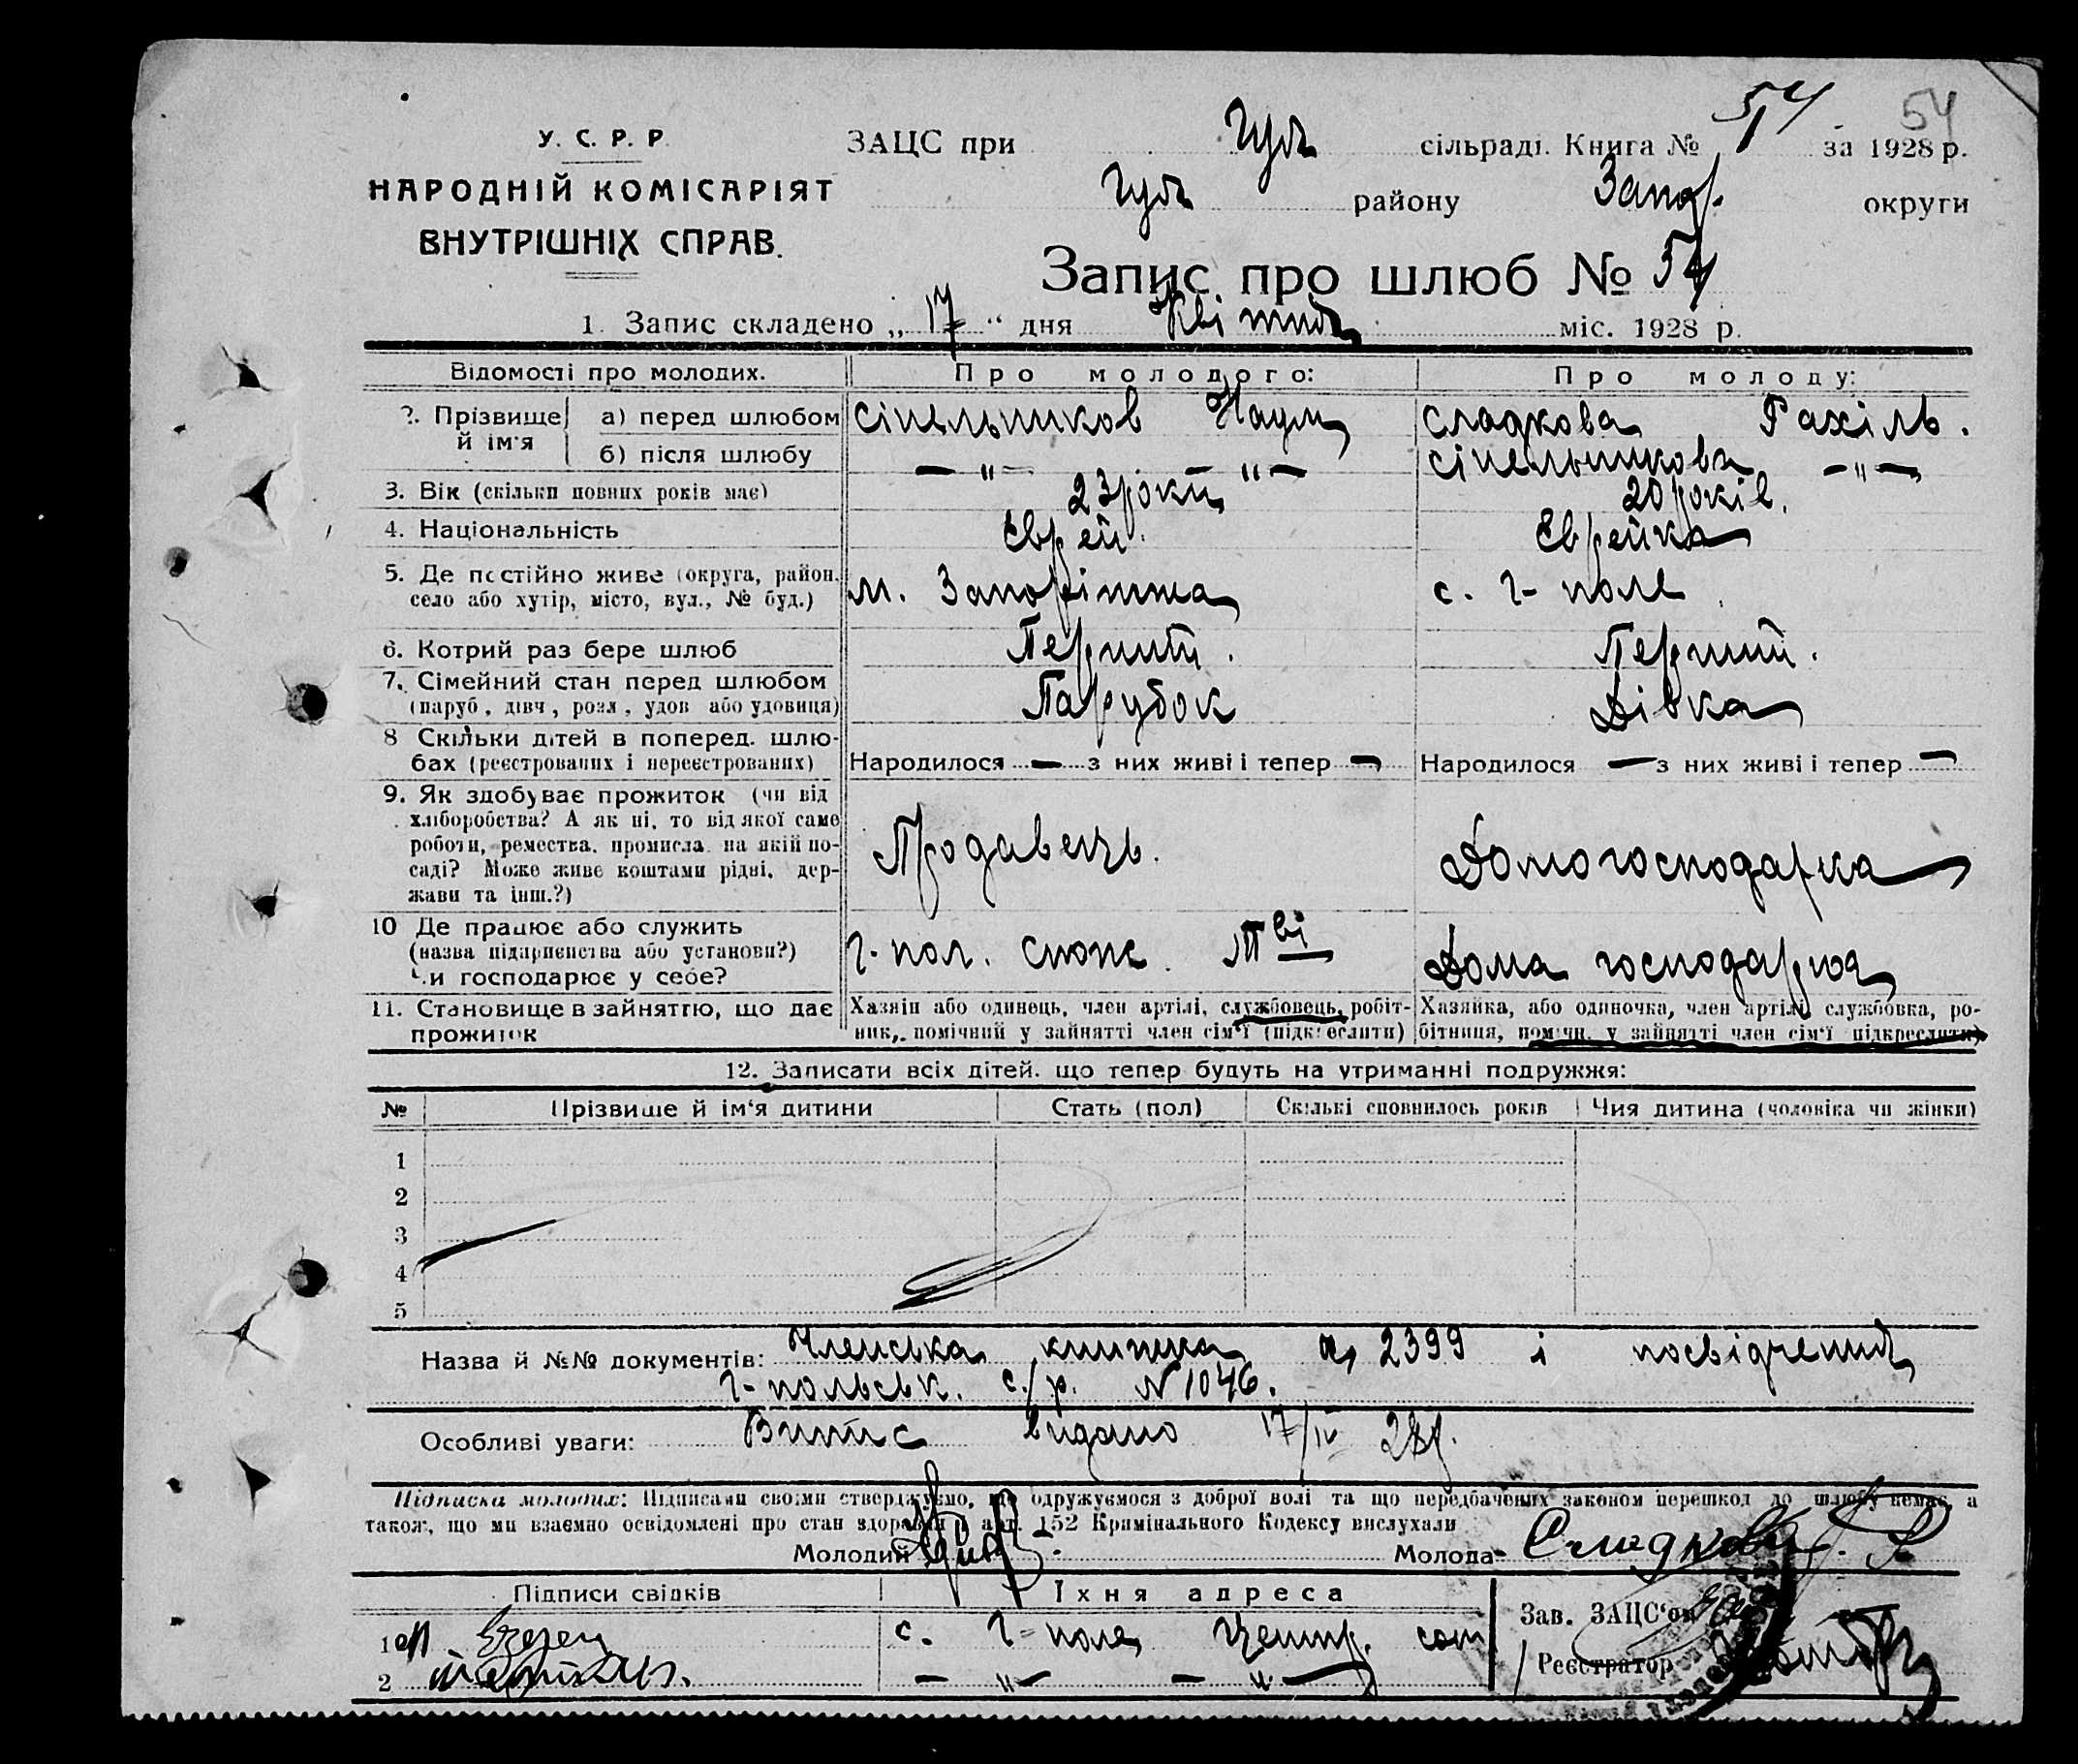 54
У. С. Р. Р.
НАРОДНІЙ КОМІСАРІЯТ
ВНУТРІШНІХ СПРАВ.
ЗАЦС при сільраді. Книга № 54 за 1928 р.
району Запор. округи
Запис про шлюб № 54
1. Запис складено „ 17 “ дня Квітня міс. 1928 р.
Відомості про молодих. Про молодого: Про молоду:
2. Прізвище й ім'я а) перед шлюбом Сінельников Наум Сладкова Рахіль.
б) після шлюбу — „ — — „ — Сінельникова — „ —
3. Вік (скільки повних років має) 23 роки 20 років.
4. Національність Єврей. Єврейка
5. Де постійно живе (округа, район, м. Запоріжжа с. Г- поле
село або хутір, місто, вул., № буд.)
6. Котрий раз бере шлюб Перший. Перший.
7. Сімейний стан перед шлюбом Парубок Дівка
(паруб., дівч., розл., удов. або удовиця)
8 Скільки дітей в поперед. шлю-
бах (реєстрованих і нереєстрованих) Народилося — з них живі і тепер — Народилося — з них живі і тепер —
9. Як здобуває прожиток (чи від
хліборобства? А як ні, то від якої саме
роботи, ремества, промисла, на якій по- Продавець. Домогосподарка
саді? Може живе коштами рідні, дер-
жави та інш.?)
10 Де працює або служить
(назва підприємства або установи?) Г-пол. спож. Т-ві Дома господарює
Чи господарює у себе?
11. Становище в зайняттю, що дає Хазяїн або одинець, член артілі, службовець, робіт- Хазяйка, або одиночка, член артілі, службовка, ро-
прожиток ник, помічний у зайнятті член сім'ї (підкреслити) бітниця, помічн. у зайнятті член сім'ї підкреслити)
12. Записати всіх дітей, що тепер будуть на утриманні подружжя:
№ Прізвище й ім'я дитини Стать (пол) Скількі сповнилось років Чия дитина (чоловіка чи жінки)
1
2
3
4
5
Назва й №№ документів: Членська книжка 2399 і посвідчення
Г-польськ. с/р. № 1046.
Особливі уваги: Витяг видано 17/IV 28р.
Підписка молодих: Підписами своїми стверджуємо, що одружуємося з доброї волі та що передбачених законом перешкод до шлюбу немає, а
також, що ми взаємно освідомлені про стан здоров'я і арт. 152 Кримінального Кодексу вислухали
Молодий Молода Сладкова. Р
Підписи свідків Їхня адреса
1 с. Г-поле Центр. сот
2 — „ — — „ —
Зав. ЗАЦС'ом
Реєстратор